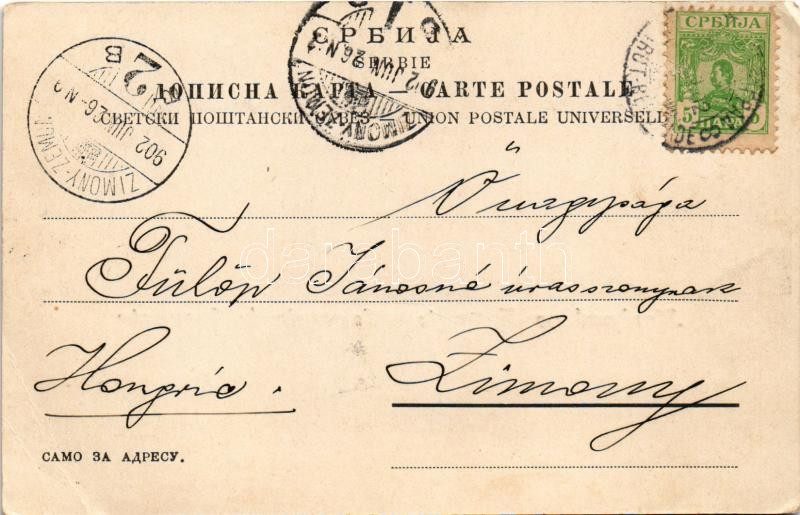 СРБИЈА
SERBIE
ДОПИСНА КАРТА — CARTE POSTALE
СВЕТСКИ ПОШТАНСКИ САВЕЗ — UNION POSTALE UNIVERSELLE
СРБИЈА
5 ПАРА 5
ZIMONY-ZEMUN
902 JUN 26 N 9
B 2 B
ZIMONY-ZEMUN
902 JUN 26 N
Ő nagysága
Fülöp Jánosné úrasszonynak
Hongrie.
Zimony
САМО ЗА АДРЕСУ.
darabanth